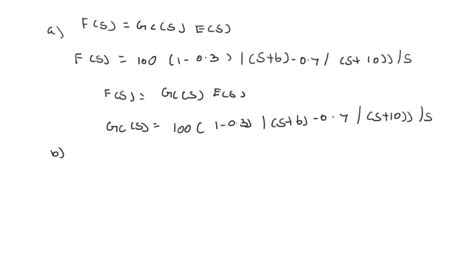 a) F(s) = Gc(s) E(s)
F(s) = 100 (1-0.3) | (S+b) -0.7 / (S+10)) /s
F(s) = Gc(s) E(s)
Gc(s) = 100 ( 1-0.3) | (S+b) -0.7 / (S+10)) /s
b)